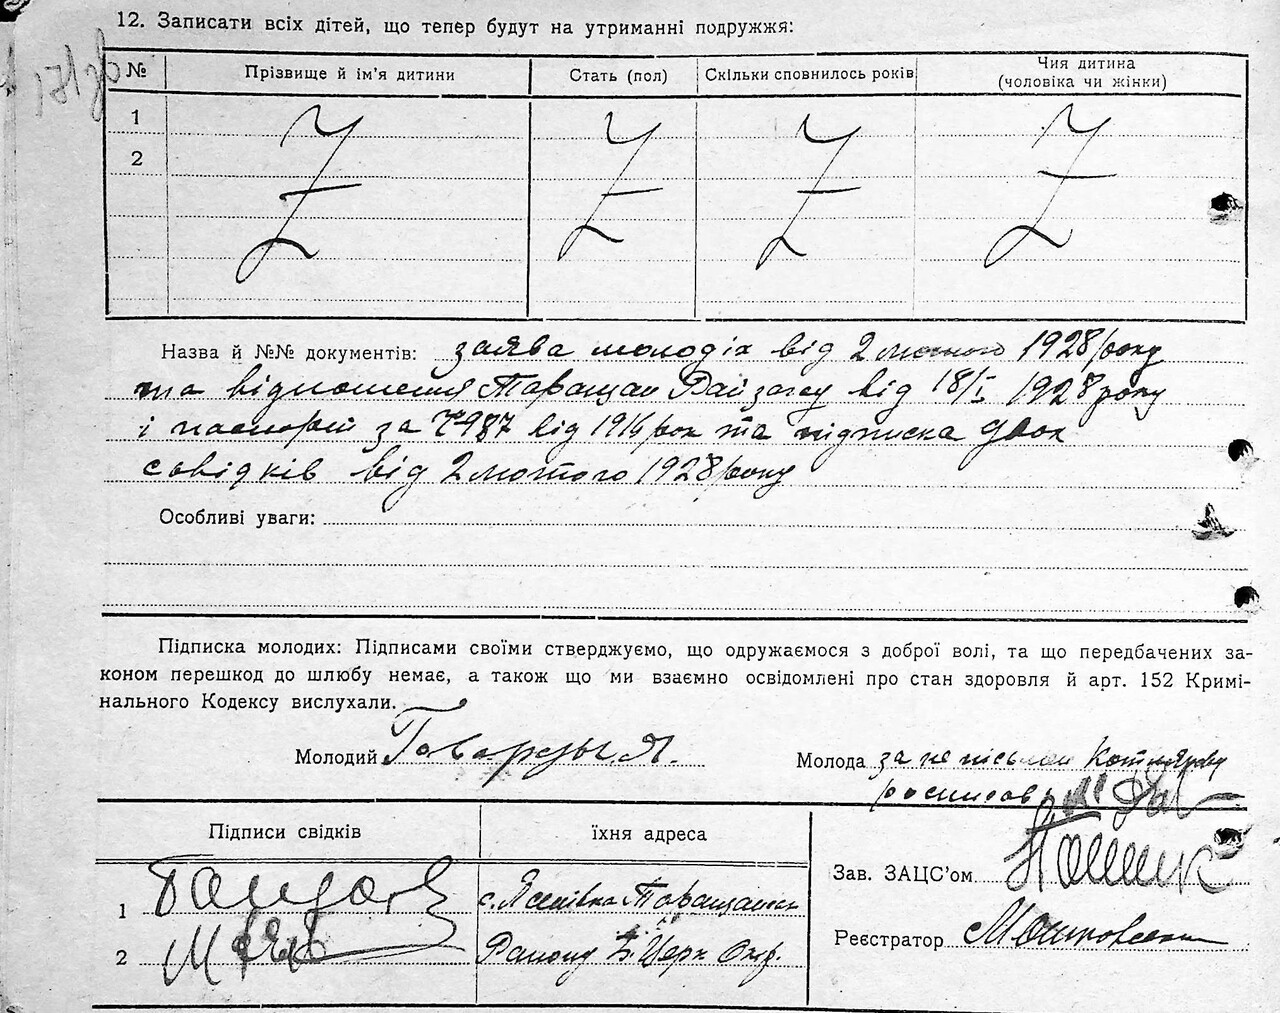 12. Записати всіх дітей, що тепер будут на утриманні подружжя:
№ Прізвище й ім’я дитини Стать (пол) Скільки сповнилось років Чия дитина
(чоловіка чи жінки)
1
2
Назва й №№ документів: заява молодіх від 2 лютого 1928 року
та відношення Таращан Райзагсу від 18/I 1928 року
і паспорті за № 987 від 1914 рок та підписка двох
свідків від 2 лютого 1928 року
Особливі уваги:
Підписка молодих: Підписами своїми стверджуємо, що одружаємося з доброї волі, та що передбачених за-
коном перешкод до шлюбу немає, а також що ми взаємно освідомлені про стан здоровля й арт. 152 Кримі-
нального Кодексу вислухали.
Молодий Молода за не Котлярову
росписовъ
Підписи свідків їхня адреса
Зав. ЗАЦС’ом
1 с. Таращанськ
2 Району Б. Церк Окр.
Реєстратор